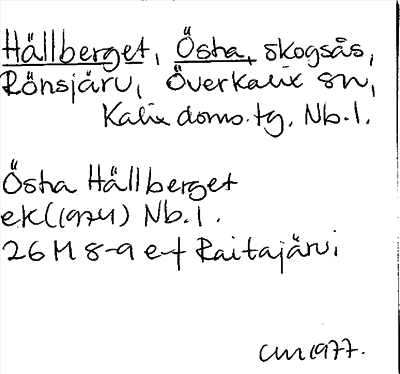 Hällberget, Östra, skogsås,
Rönsjärv, Överkalix sn,
Kalix doms.tg, Nb.l.
Östra Hällberget
ek (1974) Nb.l.
26 M 8-9 e-f Raitajärvi
CM 1977.